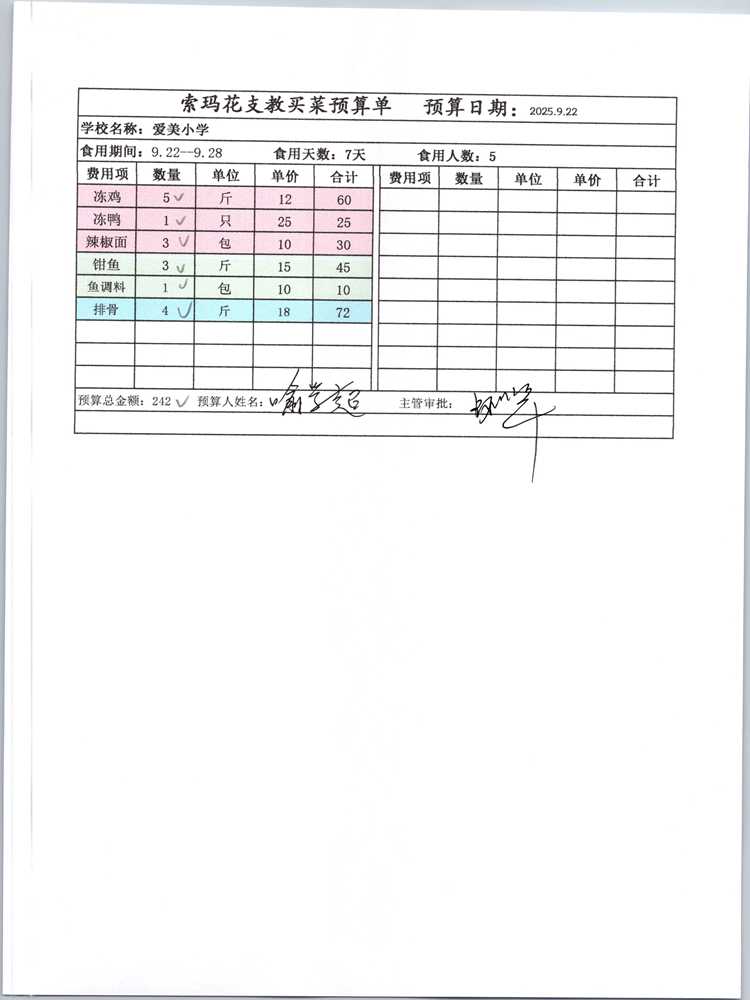 索玛花支教买菜预算单 预算日期：2025.9.22
学校名称：爱美小学
食用期间：9.22--9.28 食用天数：7天 食用人数：5
费用项 数量 单位 单价 合计 费用项 数量 单位 单价 合计
冻鸡 5 斤 12 60
冻鸭 1 只 25 25
辣椒面 3 包 10 30
钳鱼 3 斤 15 45
鱼调料 1 包 10 10
排骨 4 斤 18 72
预算总金额：242 预算人姓名：喻学超 主管审批：